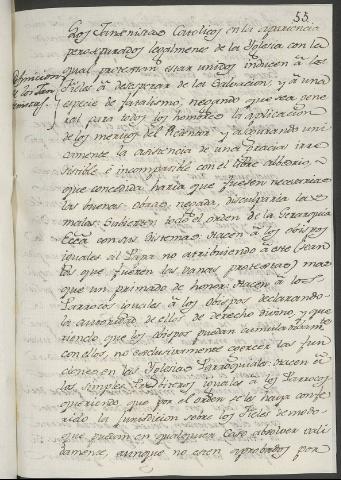 55.
Los Jansenistas Catolicos en la apariencia
pero separados legalmente de la Yglesia con la
qual protestan estar unidos inducen â los
Fieles â desesperar de la Salvacion, y â una
especie de fatalismo; negando que sea gene-
ral para todos los hombres la aplicacion
de los meritos del Redentor y asegurando uni-
camente la asistencia de una Gracia irre-
sistible è incompatible con el libre albedrio,
que concedida, haria que fuesen necesarias
las buenas obras: negada, disculparia las
malas. Subvierten todo el orden de la Gerarquia
con sus sistemas. Hacen â los obispos
iguales al Papa no atribuyendo â este (sean
las que fueren las vanas protestas) mas
que un primado de honor. Hacen â los
Parrocos iguales â los Obispos declarando
la autoridad de ellos de derecho divino, y que-
riendo que los obispos puedan cumulativamte
con ellos, no exclusivamente exercer las fun-
ciones en las Yglesias Parroquiales: hacen â
los simples Presbiteros iguales â los Parrocos
queriendo que por el orden se les haya confe-
rido la Jurisdicion sobre los Fieles de modo
que puedan en qualquier Caso absolver vali-
damente, aunque no esten aprobados por
Definicion
de los Jan-
senistas.